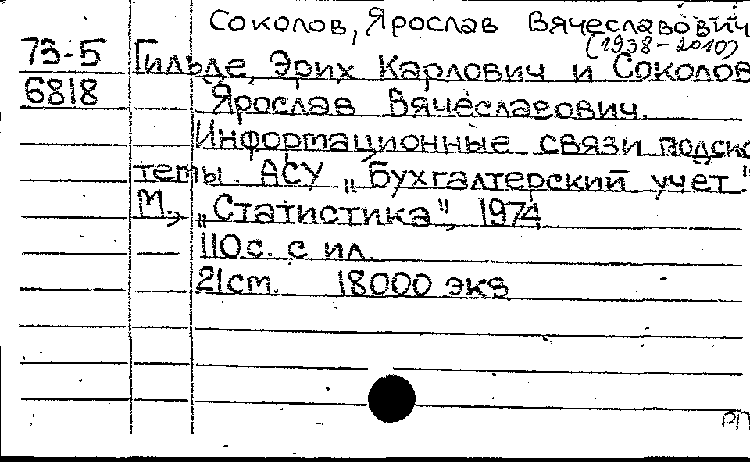 Соколов, Ярослав Вячеславович
(1938-2010)
73-5 Гильде, Эрих Карлович и Соколов
6818 Ярослав Вячеславович.
Информационные связи подсис
темы АСУ „Бухгалтерский учет"
М., „Статистика", 1974
110с. с ил.
21ст. 18000 экз
РП